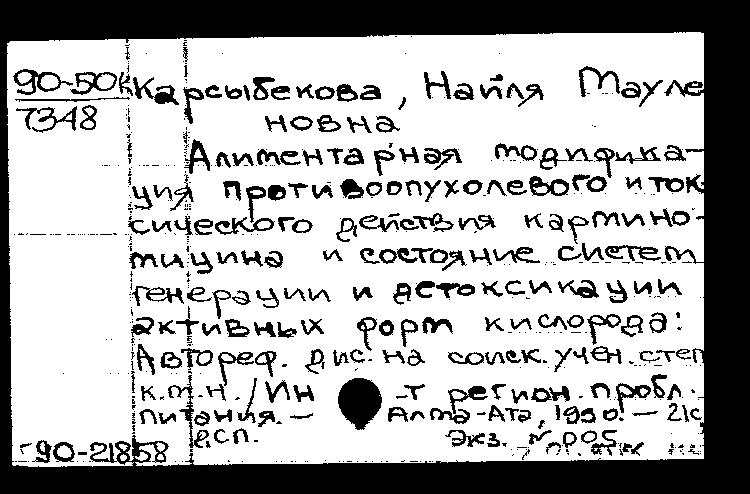 90-50к Карсыбекова, Наиля Мауле
7348 новна
Алиментарная модифика-
ция противоопухолевого и ток
сического действия кармино-
мицина и состояние систем
генерации и детоксикации
активных форм кислорода:
Автореф. дис. на соиск. учен. степ
к.м.н. / Ин-т регион. пробл.
питания. — Алма-Ата, 1990. — 21с
Экз. №005
90-21858